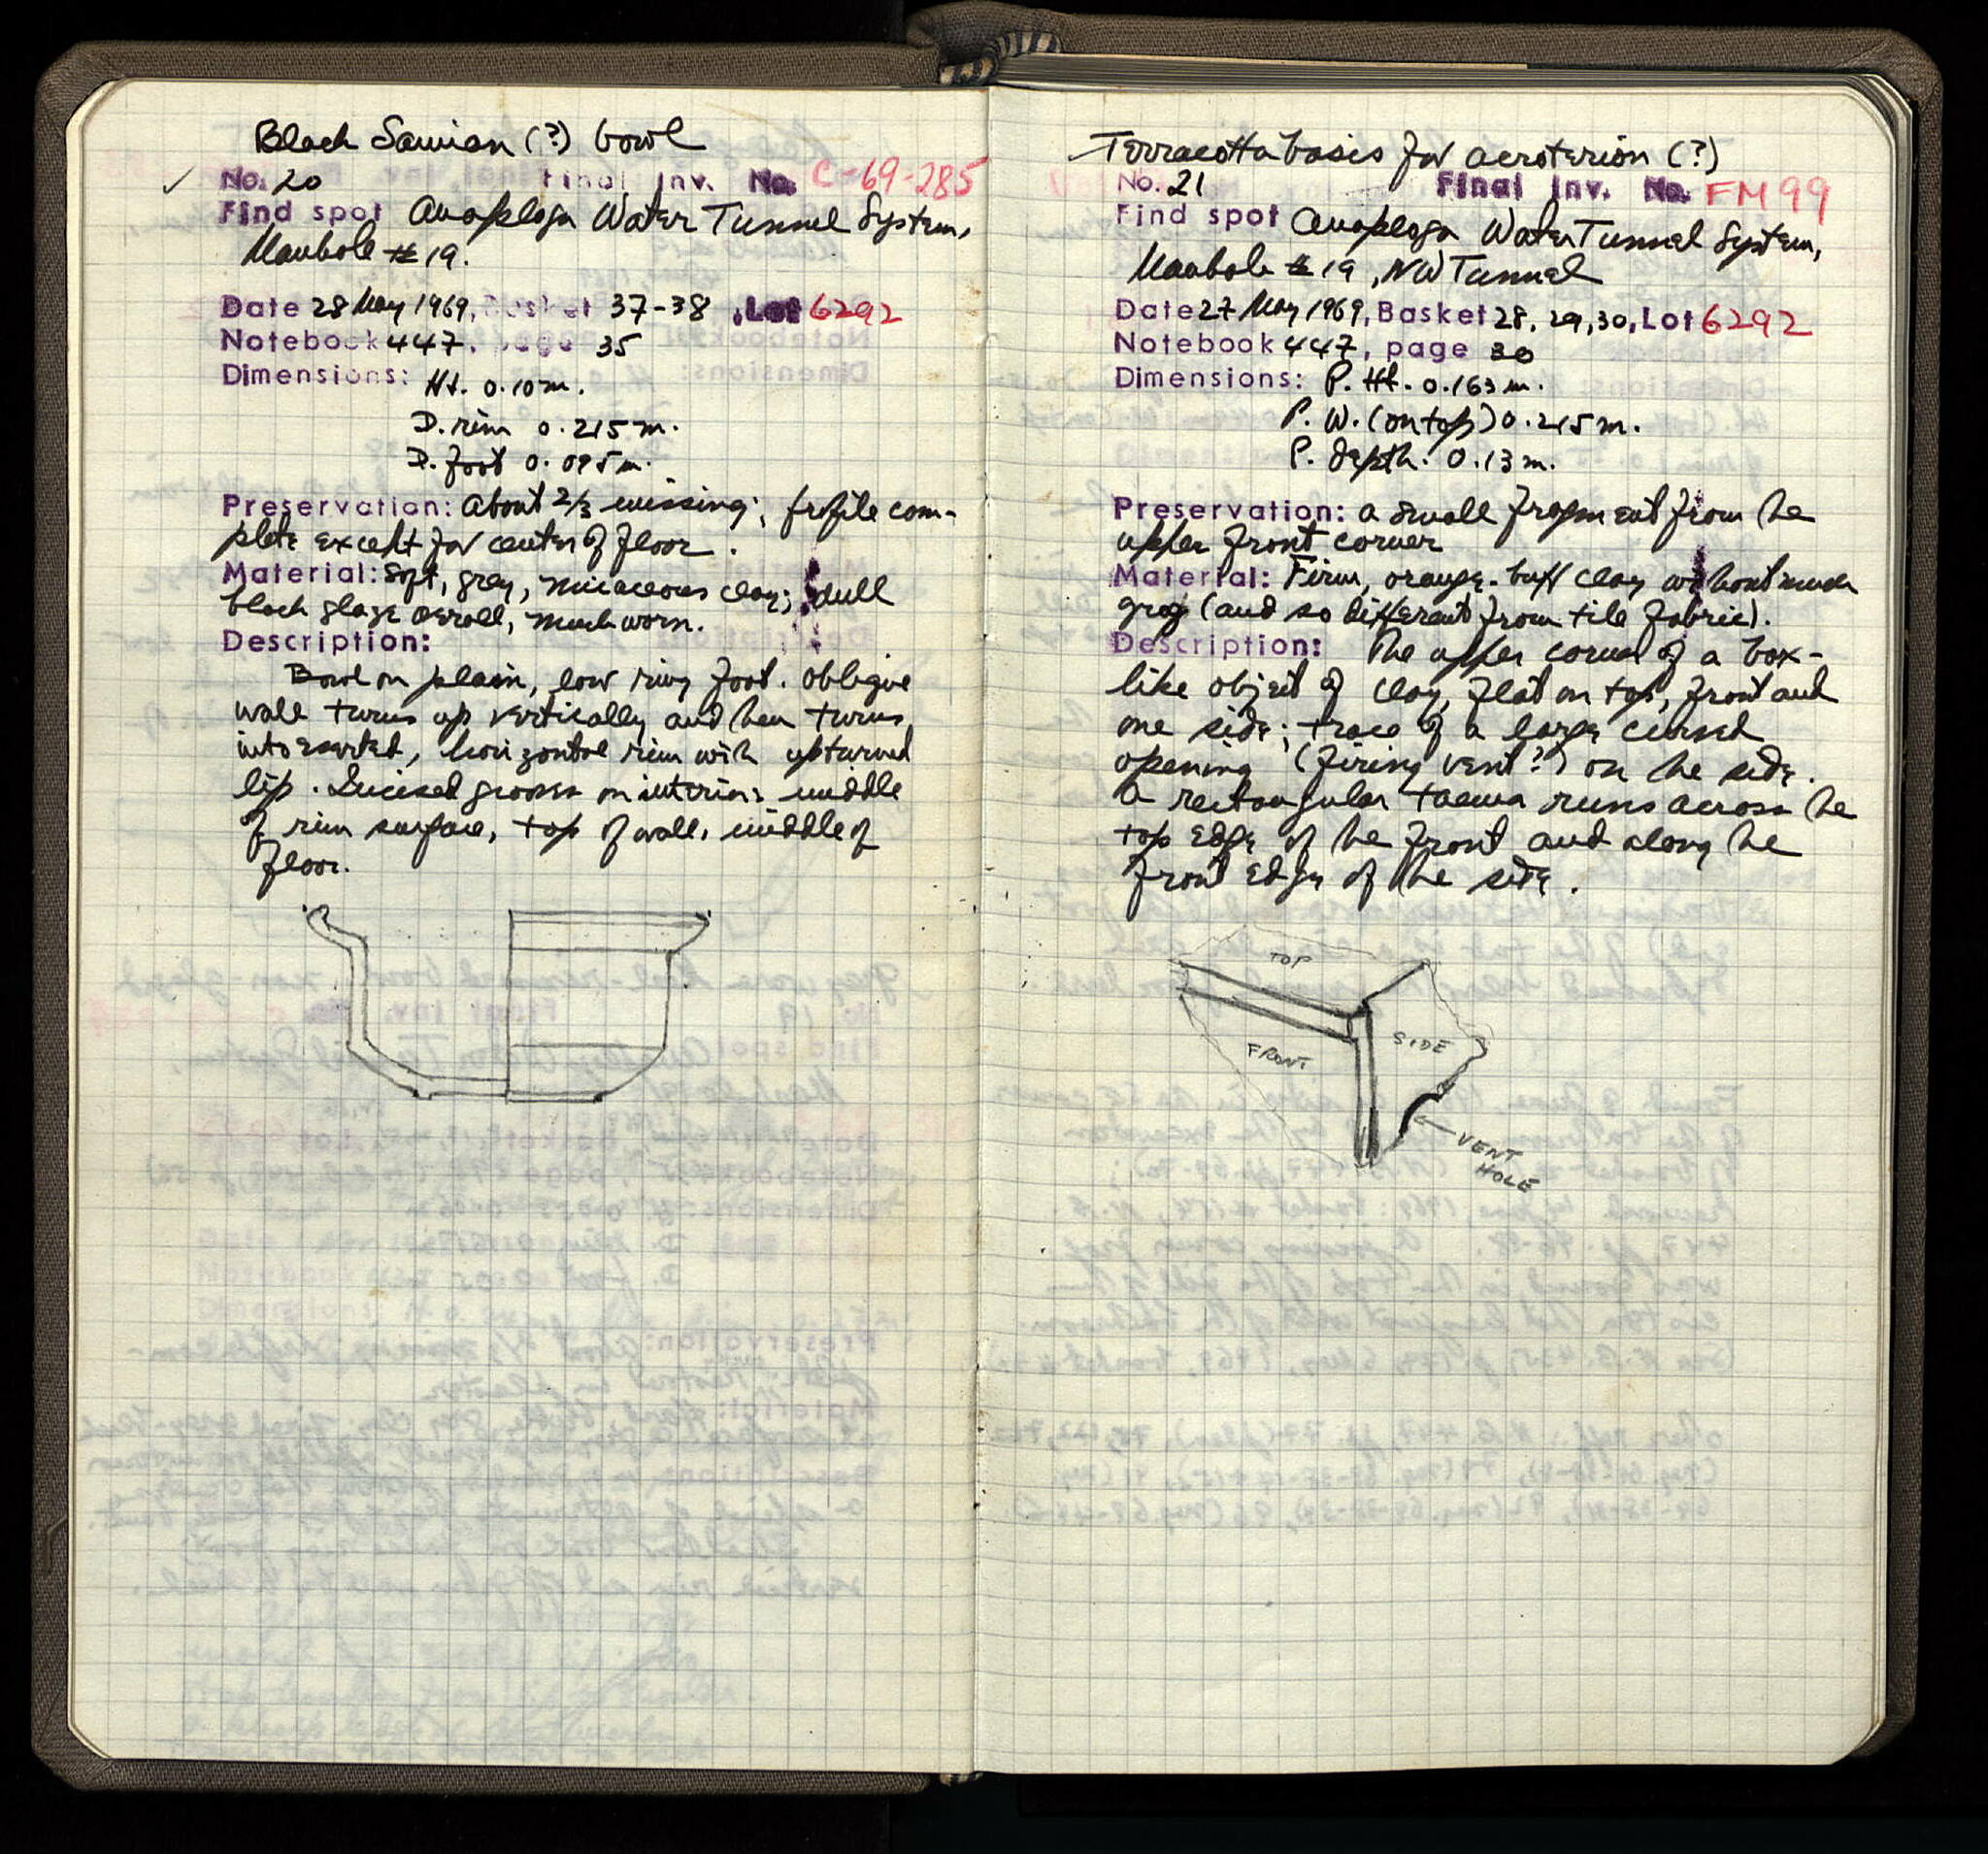 Black Samian (?) bowl
✓ No. 20 Final Inv. No. C-69-285
Find spot Anaploga Water Tunnel System,
Manhole #19.
Date 28 May 1969, Basket 37-38, Lot 6292
Notebook 447, page 35
Dimensions: Ht. 0.10 m.
D. rim 0.215 m.
D. foot 0.095 m.
Preservation: About 2/3 missing; profile com-
plete except for center of floor.
Material: Soft, grey, micaceous clay; dull
black glaze overall, much worn.
Description:
Bowl on plain, low ring foot. Oblique
wall turns up vertically and then turns
into everted, horizontal rim with upturned
lip. Incised grooves on interior: middle
of rim surface, top of wall, middle of
floor.
Terracotta basis for acroterion (?)
No. 21 Final Inv. No. FM 99
Find spot Anaploga Water Tunnel System,
Manhole #19, NW Tunnel
Date 27 May 1969, Basket 28, 29, 30, Lot 6292
Notebook 447, page 30
Dimensions: P. Ht. 0.163 m.
P. W. (on top) 0.215 m.
P. depth. 0.13 m.
Preservation: a small fragment from the
upper front corner
Material: Firm, orange-buff clay without much
grog (and so different from tile fabric).
Description: The upper corner of a box-
like object of clay, flat on top, front and
one side; trace of a large curved
opening (firing vent?) on the side.
A rectangular taenia runs across the
top edge of the front and along the
front edge of the side.
TOP
SIDE
FRONT
VENT
HOLE